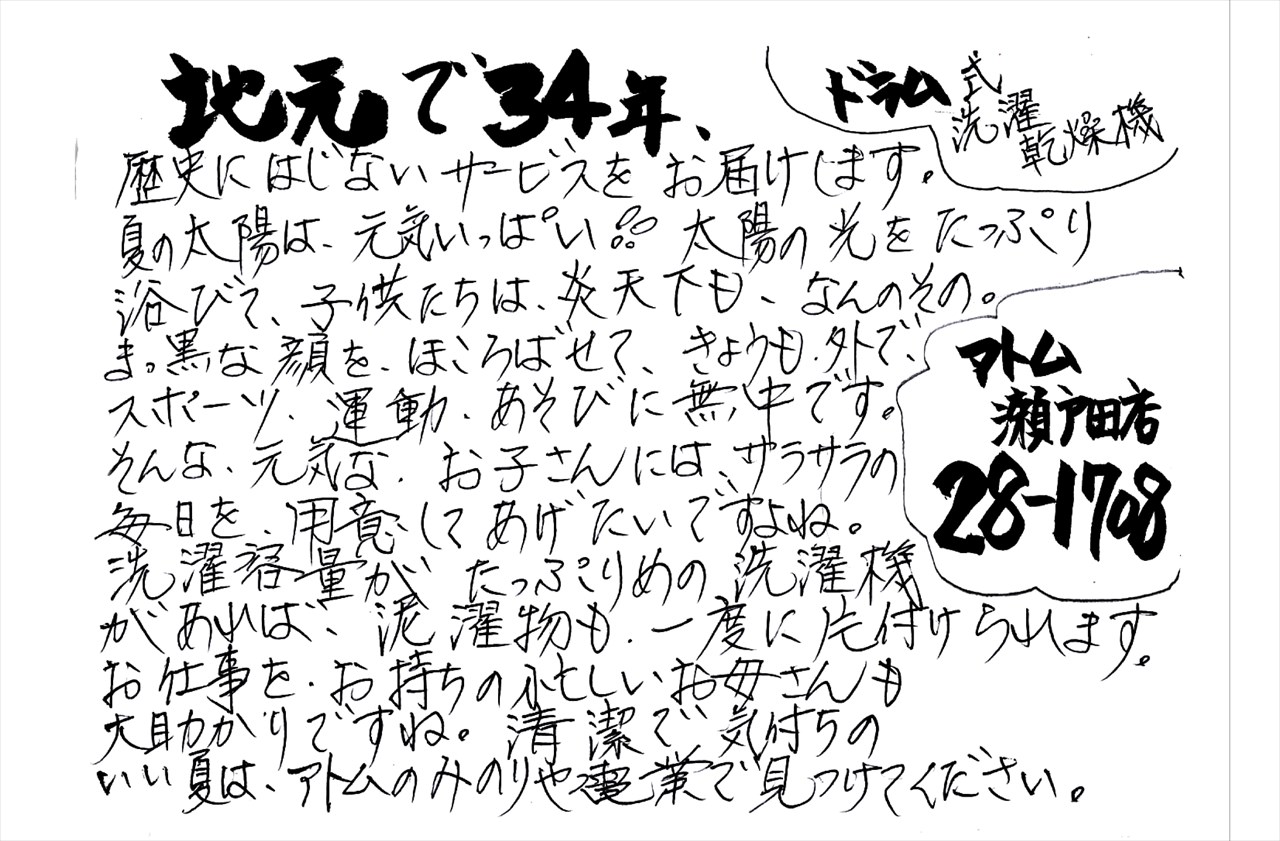 地元で34年、
ドラム式
洗濯
乾燥機
歴史にはじないサービスをお届けします。
夏の太陽は、元気いっぱい 太陽の光をたっぷり
浴びて、子供たちは、炎天下も、なんのその。
まっ黒な顔を、ほころばせて、きょうも、外で、
スポーツ、運動、あそびに無中です。
そんな、元気な、お子さんには、サラサラの
毎日を、用意してあげたいですよね。
洗濯容量が、たっぷりめの洗濯機
があれば、泥濯物も、一度に片付けられます。
お仕事を、お持ちの忙しいお母さんも
大助かりですね。清潔で気付ちの
いい夏は、アトムのみのりや電業で見つけてください。
アトム
瀬戸田店
28-1708